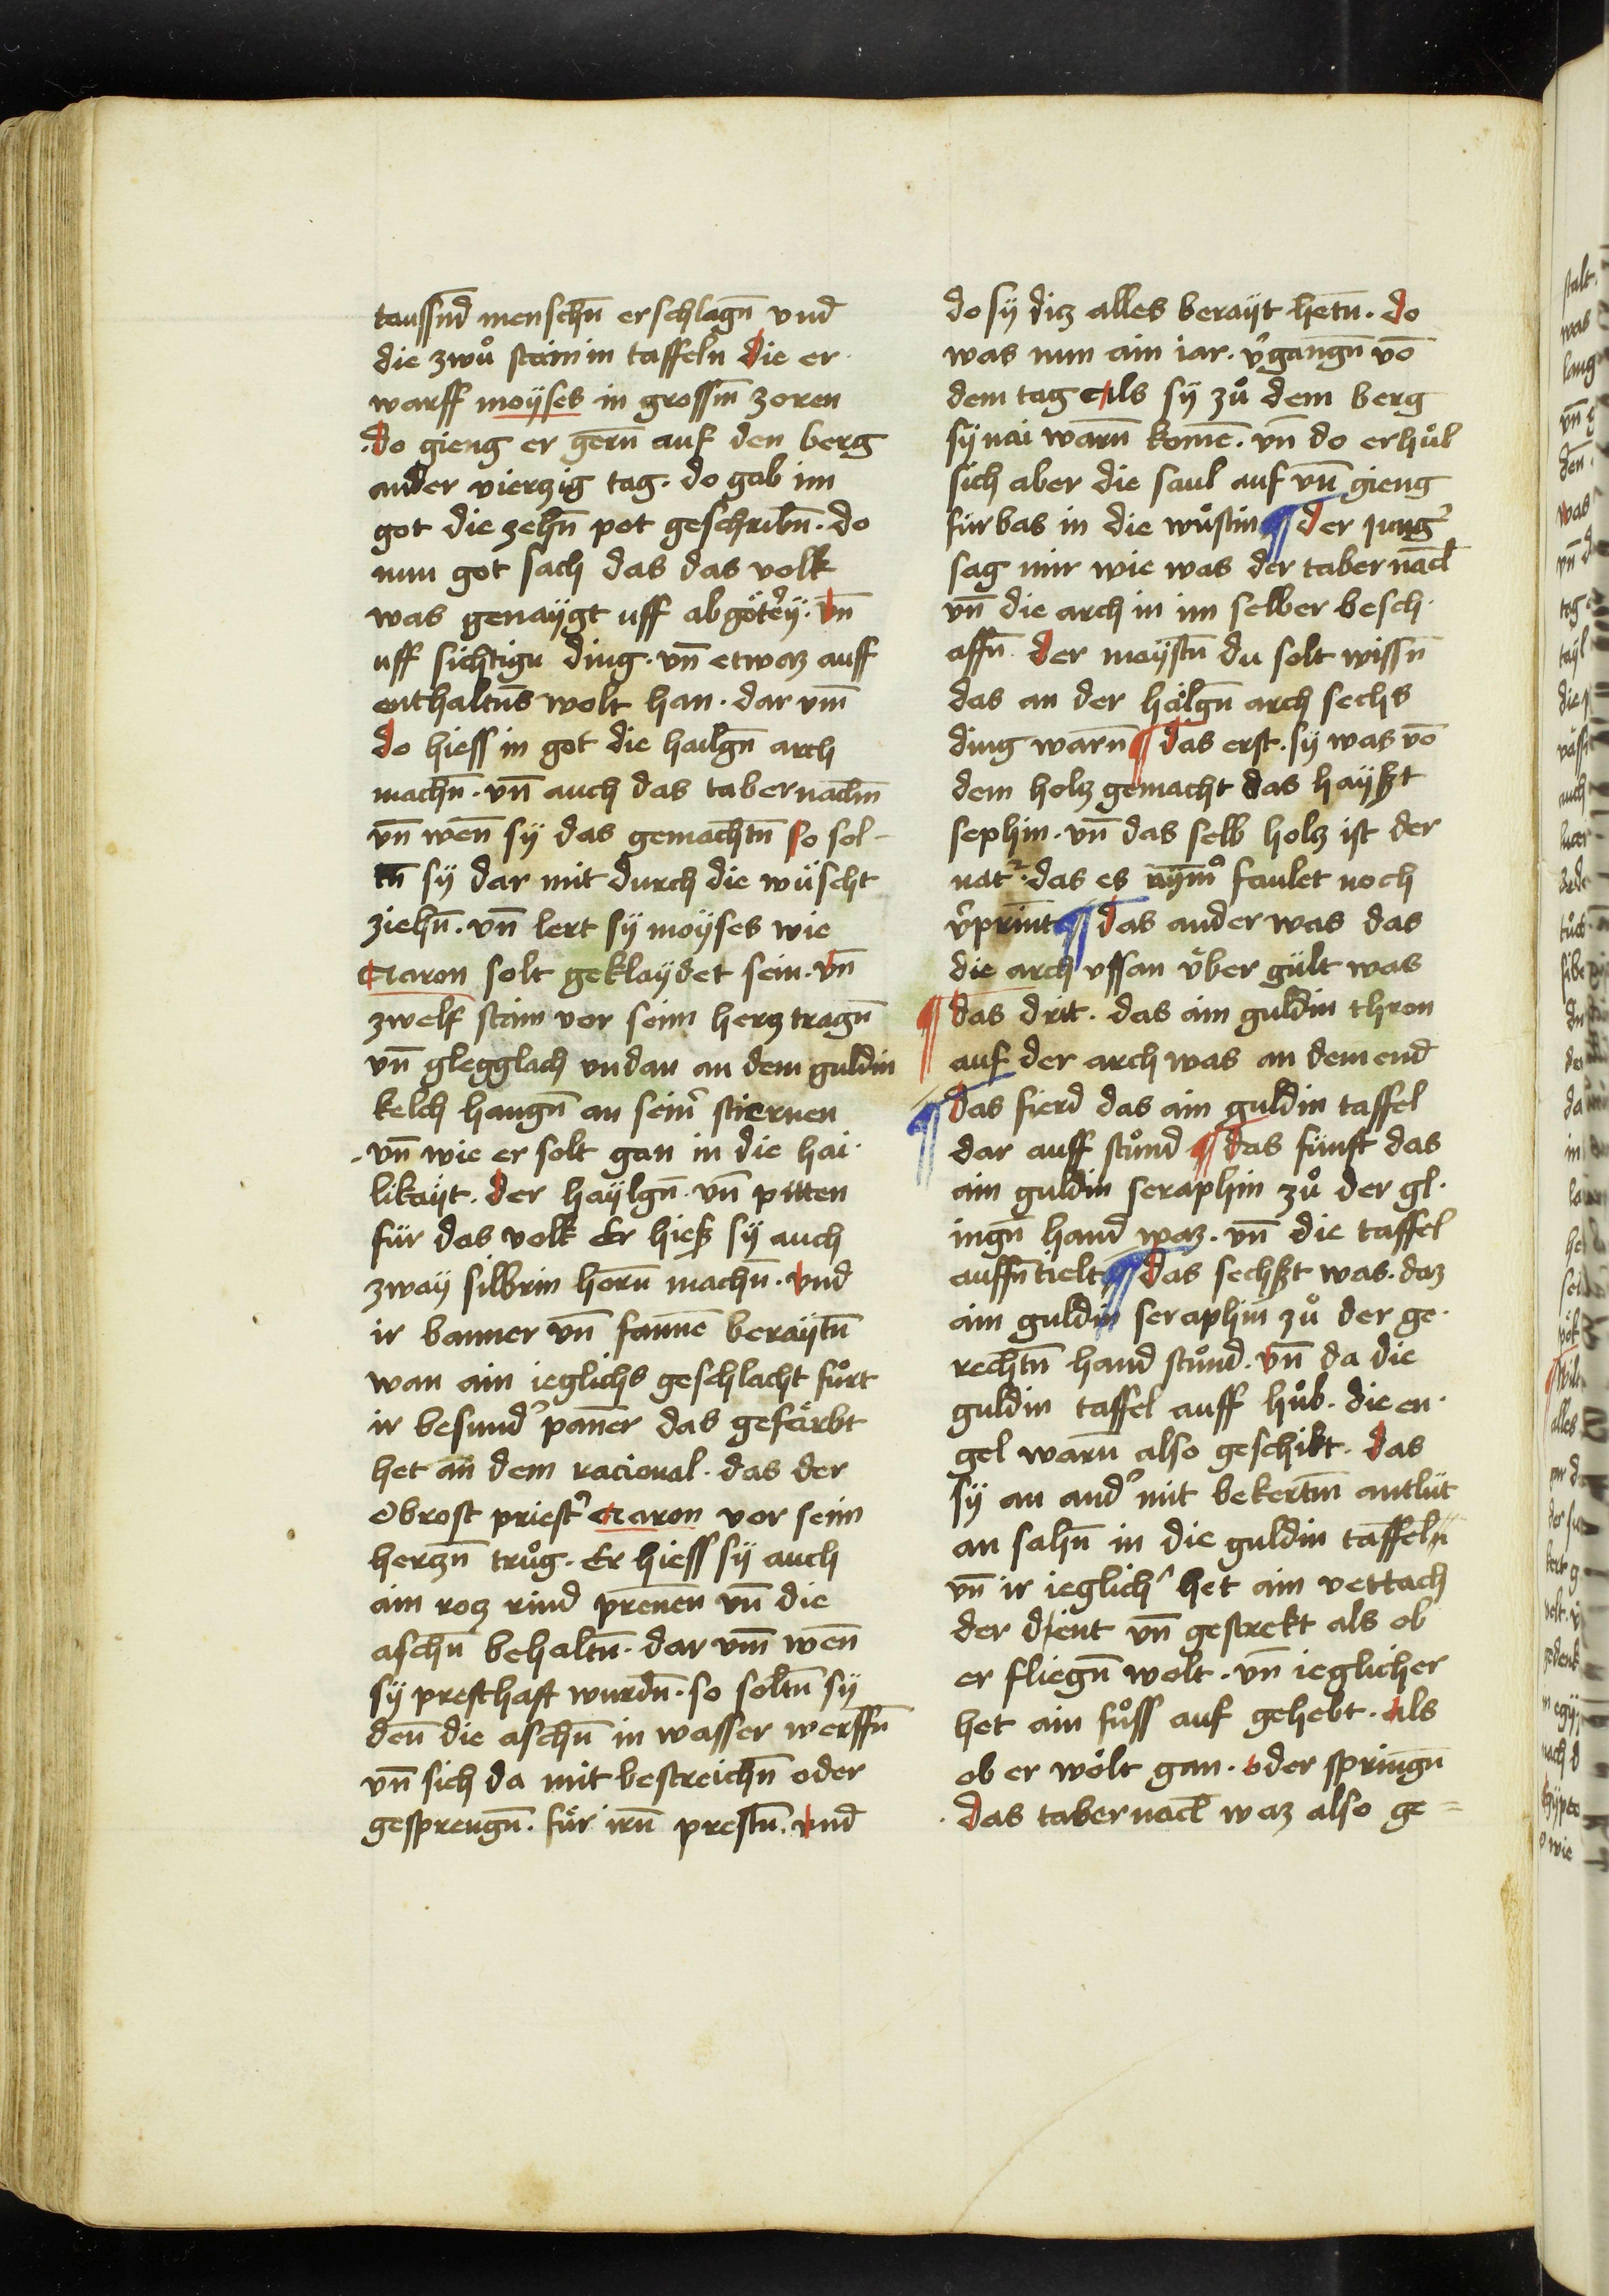 taussn̄d menschn̄ erschlagn̄ vnd
die zwů stainin taffeln̄ die er
warff moÿses in grossm̄ zoren
do gieng er gern̄ auf den berg
ander vierzig tag · do gab im
got die zehn̄ pot geschribn̄ · do
nun got sach das das volk
was genaÿgt uff abgöterÿ · vn̄
uff sichtigu ding · vn̄ etwaz auff
enthaltn̄s wolt han · dar vm̄
do hiess in got die hailgn̄ arch
machn̄ · vn̄ auch das tabernaclm̄
vn̄ wen̄ sÿ das gemachtn̄ so sol-
tn̄ sÿ dar mit durch die wüscht
ziehn̄ · vn̄ lert sÿ moÿses wie
Aaron solt geklaÿdet sein · vn̄
zwelf stain vor seim herz tragn̄
vn̄ glegglach vndan an dem guldin
kelch hangn̄ an seinr̄ stiernen
· vn̄ wie er solt gan in die hai·
likaÿt · der haÿlgn̄ · vn̄ pitten
für das volk Er hieß sÿ auch
zwaÿ silbrin horn̄ machn̄ · vnd
ir banner vn̄ fannē beraÿtn̄
wan ain ieglichs geschlacht fůrt
ir besundˀ pan̄er das gefärbt
het an dem racional · das der
obrost priestˀ Aaron vor seim
herczn̄ trůg · Er hiess sÿ auch
ain roz rind pren̄en vn̄ die
aschn̄ behaltn̄ · dar vm̄ wen̄
sÿ presthaft wurdn̄ · so soltn̄ sÿ
den̄ die aschn̄ in wasser werffn̄
vn̄ sich da mit bestreichn̄ oder
gesprengn̄ · für irn̄ prestn̄ · vnd
do sÿ diz alles beraÿt hetn̄ · do
was nun ain iar · v̄gangn̄ vō
dem tag als sÿ zů dem berg
sÿnai warn̄ komē · vn̄ do erhůb
sich aber die saul auf vn̄ gieng
fürbas in die wůstin ¶ der jungˀ
sag mir wie was der tabernacl̄
vn̄ die arch in im selber besch·
affn̄ · der maÿstˀ du solt wissn̄
das an der hälgn̄ arch sechs
ding warn̄ ¶ das erst · sÿ was vō
dem holz gemacht das haÿßt
sephin · vn̄ das selb holz ist der
natˀ · das es nÿm̊ faulet noch
v̄print ¶ das ander was das
die arch vssan über gült was
¶ das drit · das ain guldin thron
auf der arch was an dem end
¶ das fierd das ain guldin taffel
dar auff stůnd ¶ das fünft das
ain guldin seraphin zů der gl·
ingn̄ hand waz · vn̄ die taffel
auffn̄tielt ¶ das sechßt was · daz
ain guldin seraphin zů der ge·
rechtn̄ hand stůnd · vn̄ da die
guldin taffel auff hůb · die en·
gel warn̄ also geschikt · das
sÿ an andˀ mit bekertm̄ antlüt
an sahn̄ in die guldin taffeln̄
vn̄ ir ieglichˀ het ain vettach
der dient vn̄ gestrekt als ob
er fliegn̄ wolt · vn̄ ieglicher
het ain fůss auf gehebt · als
ob er wölt gan · oder springn̄
· das tabernacl̄ waz also ge=